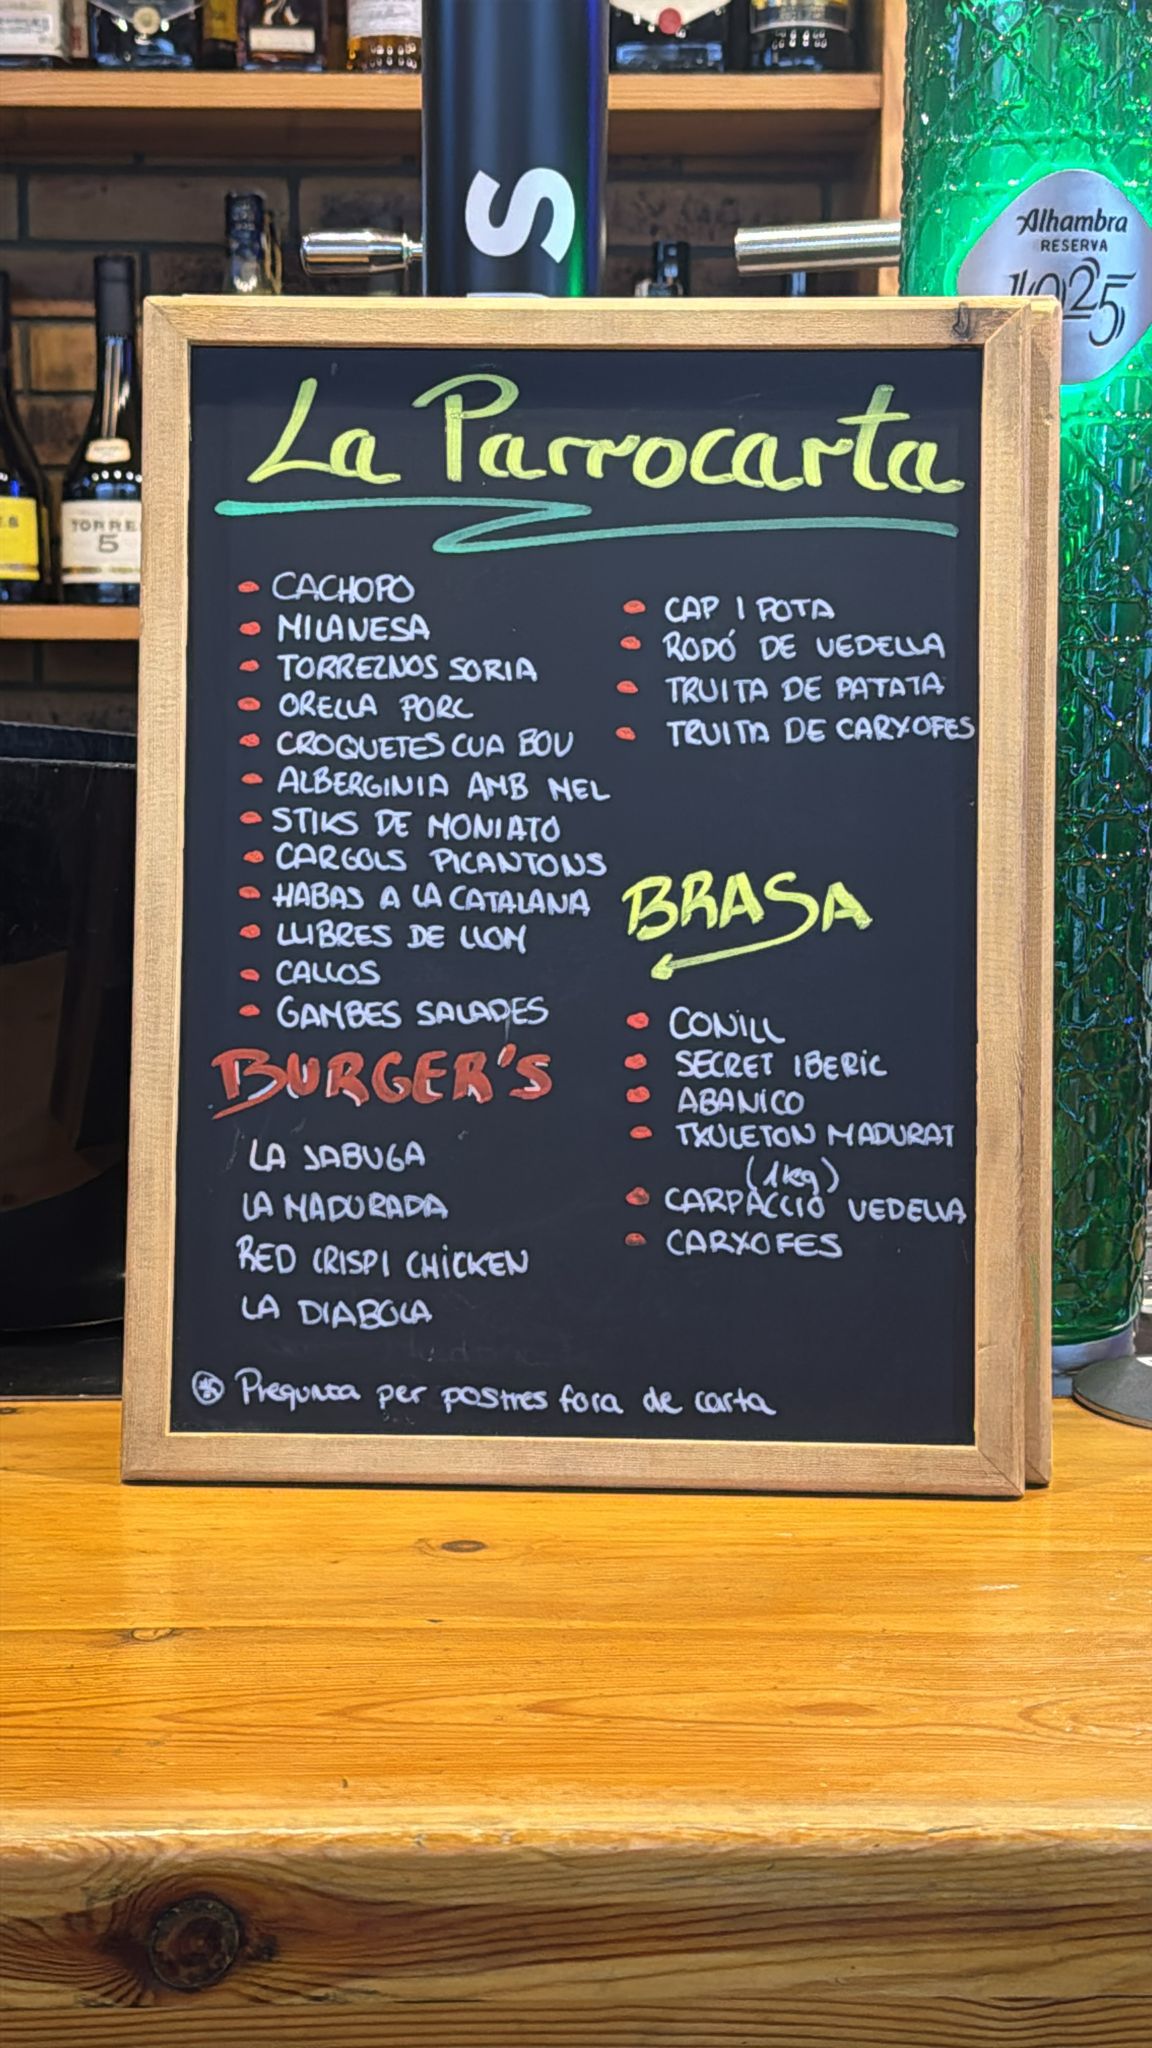 S
Alhambra
RESERVA
1925
TORRE
5
La Parrocarta
CACHOPO
MILANESA
TORREZNOS SORIA
ORELLA PORC
CROQUETES CUA BOU
ALBERGINIA AMB MEL
STIKS DE MONIATO
CARGOLS PICANTONS
HABAS A LA CATALANA
LLIBRES DE LLOM
CALLOS
GAMBES SALADES
BURGER'S
LA JABUGA
LA MADURADA
RED CRISPI CHICKEN
LA DIABOLA
CAP I POTA
RODÓ DE VEDELLA
TRUITA DE PATATA
TRUITA DE CARXOFES
BRASA
CONILL
SECRET IBERIC
ABANICO
TXULETON MADURAT
(1kg)
CARPACCIO VEDELLA
CARXOFES
Pregunta per postres fora de carta